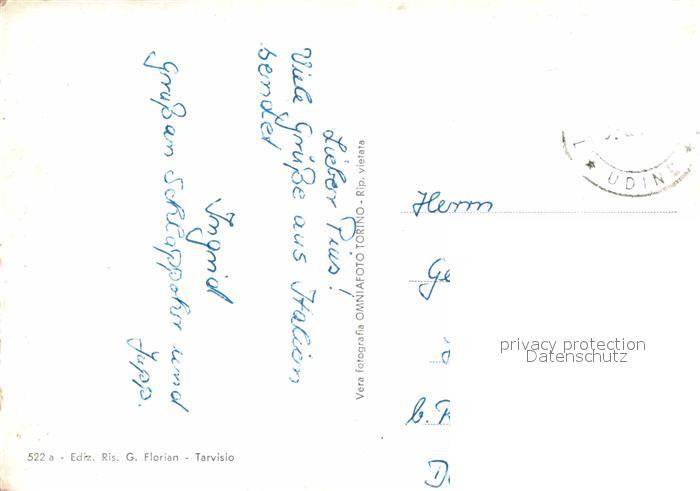 Lieber Pius!
Viele Grüße aus Italien
sendet
Ingrid
Gruß an Schlappohr und
Jupp.
Vera fotografia OMNIAFOTO TORINO - Rip. vietata
522 a - Ediz. Ris. G. Florian - Tarvisio
UDINE
Herrn
Ge
b. K
D
privacy protection
Datenschutz